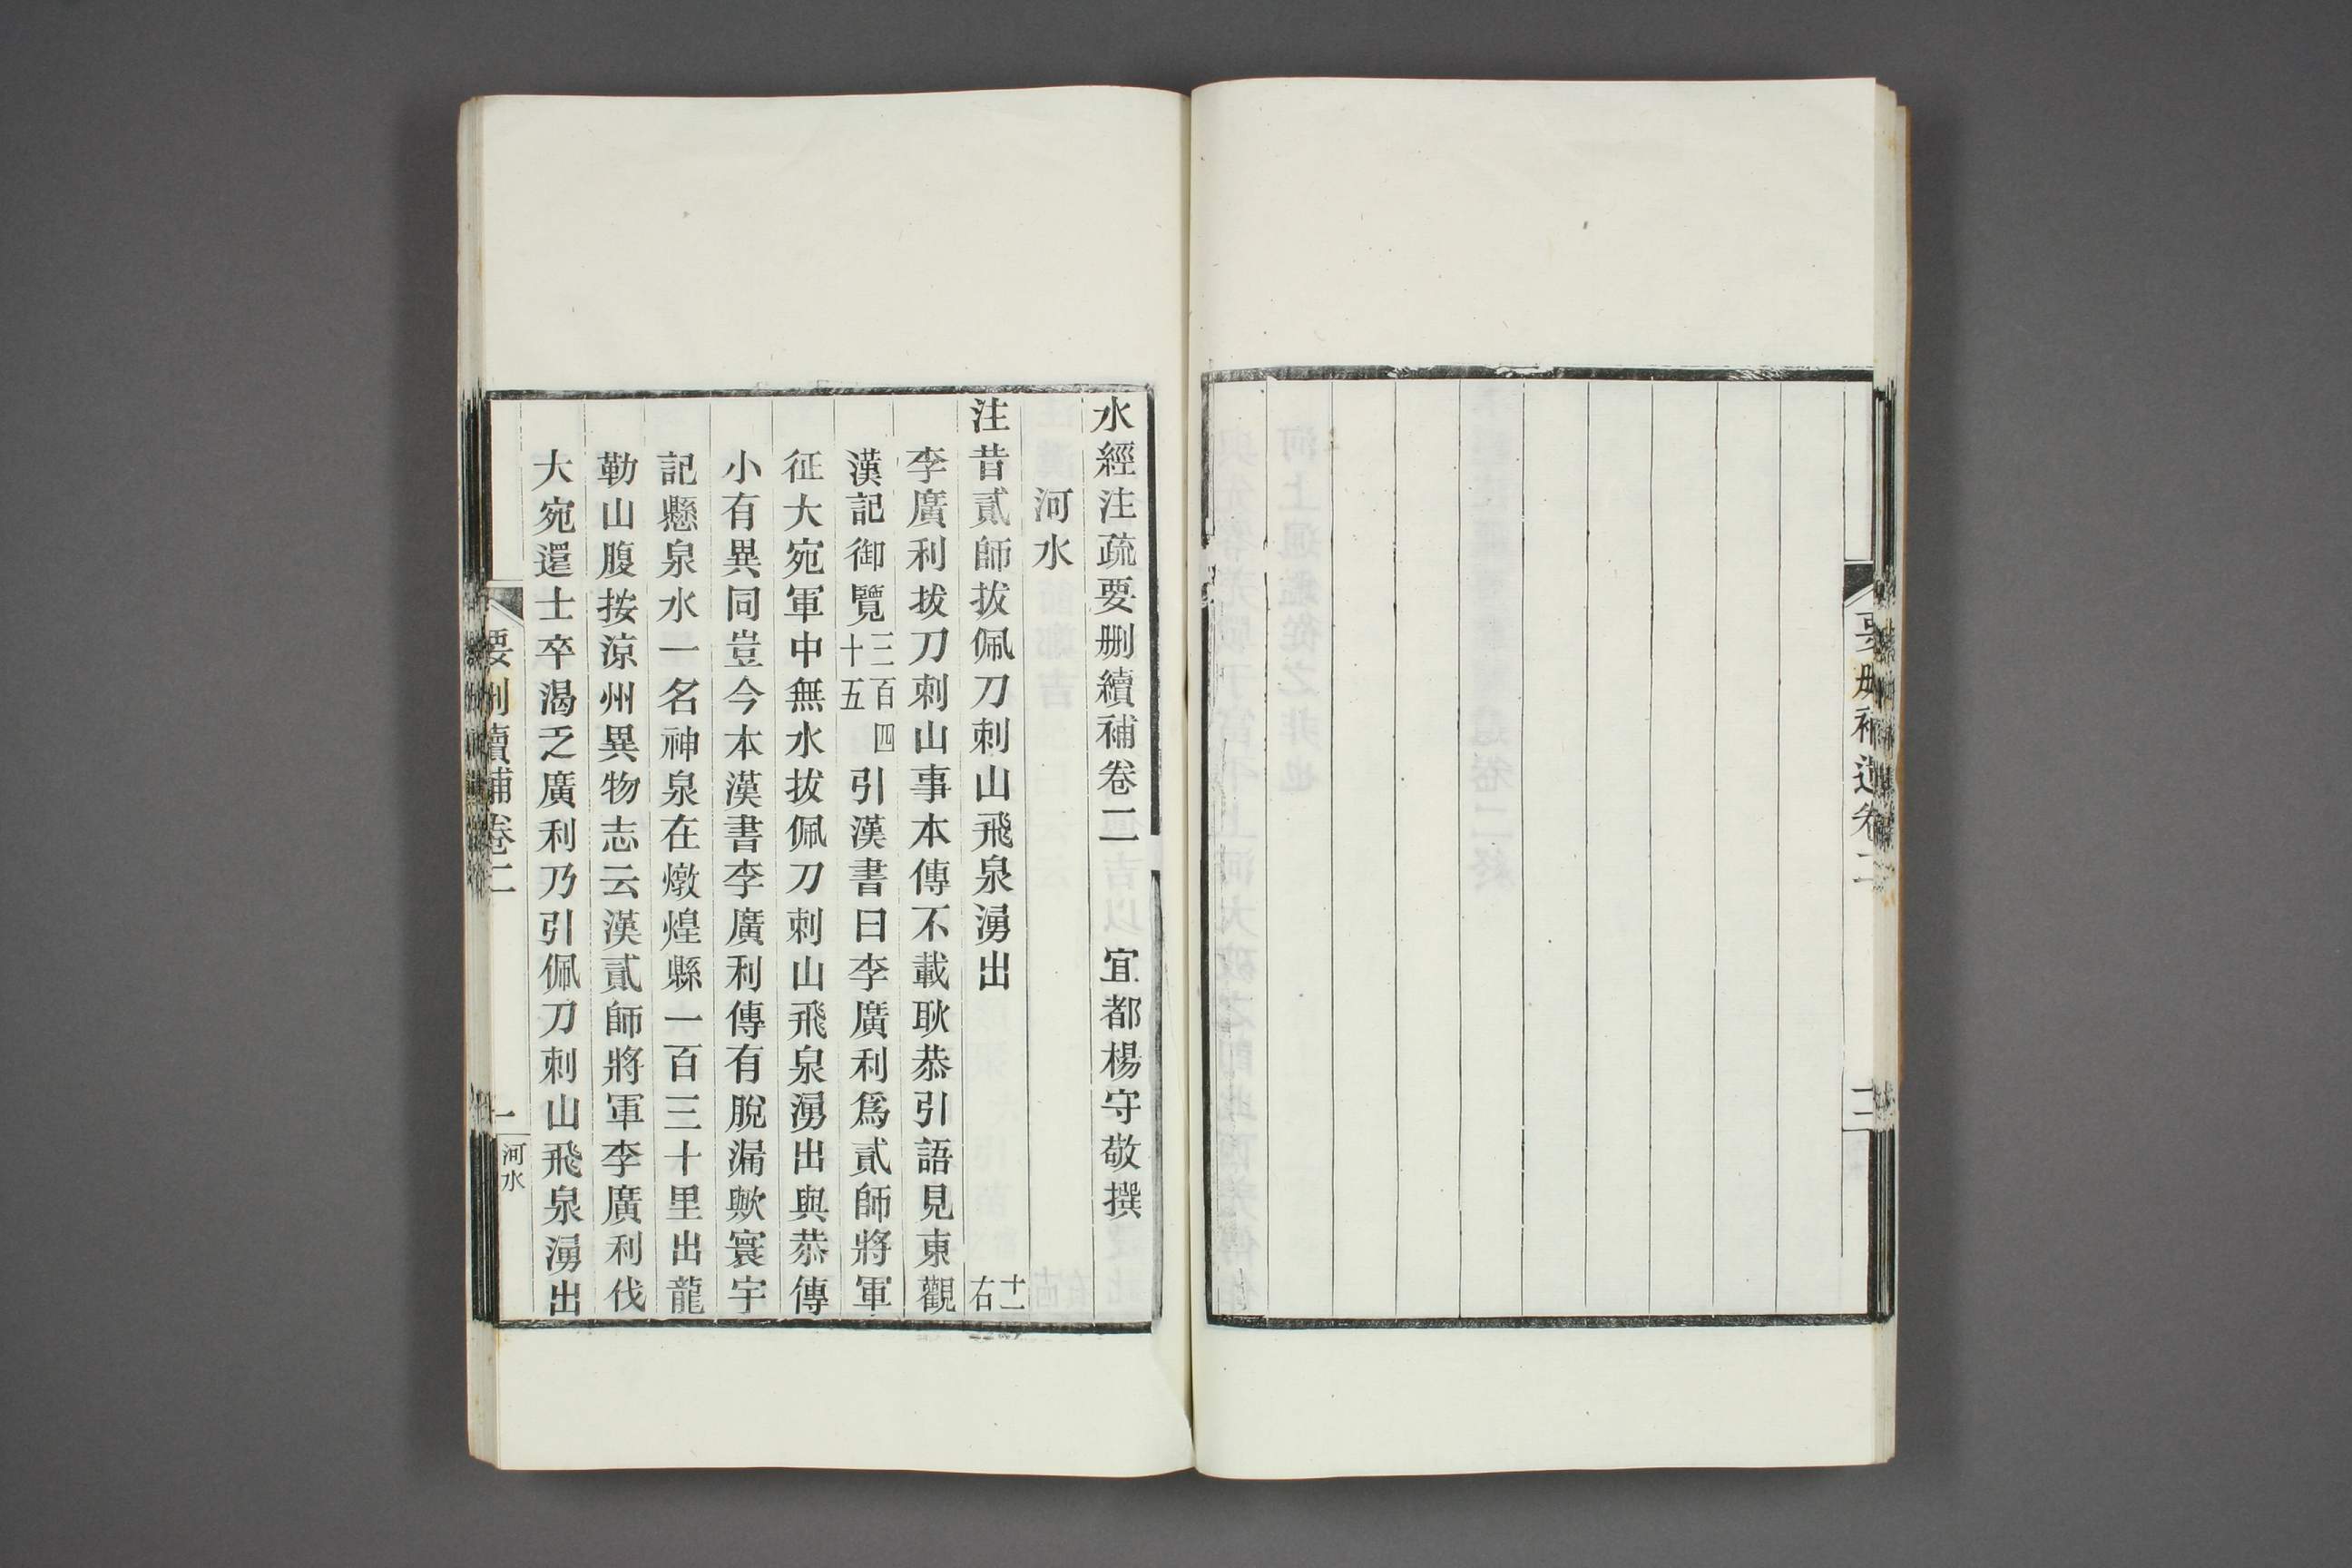 水經注疏要刪續補卷二 宜都楊守敬撰
河水
注昔貳師拔佩刀刺山飛泉湧出 十一右
李廣利拔刀刺山事本傳不載耿恭引語見東觀
漢記御覽三百四十五引漢書曰李廣利爲貳師將軍
征大宛軍中無水拔佩刀刺山飛泉湧出與恭傳
小有異同豈今本漢書李廣利傳有脫漏歟寰宇
記懸泉水一名神泉在燉煌縣一百三十里出龍
勒山腹按涼州異物志云漢貳師將軍李廣利伐
大宛還士卒渴乏廣利乃引佩刀刺山飛泉湧出
要刪續補卷二
一
河水